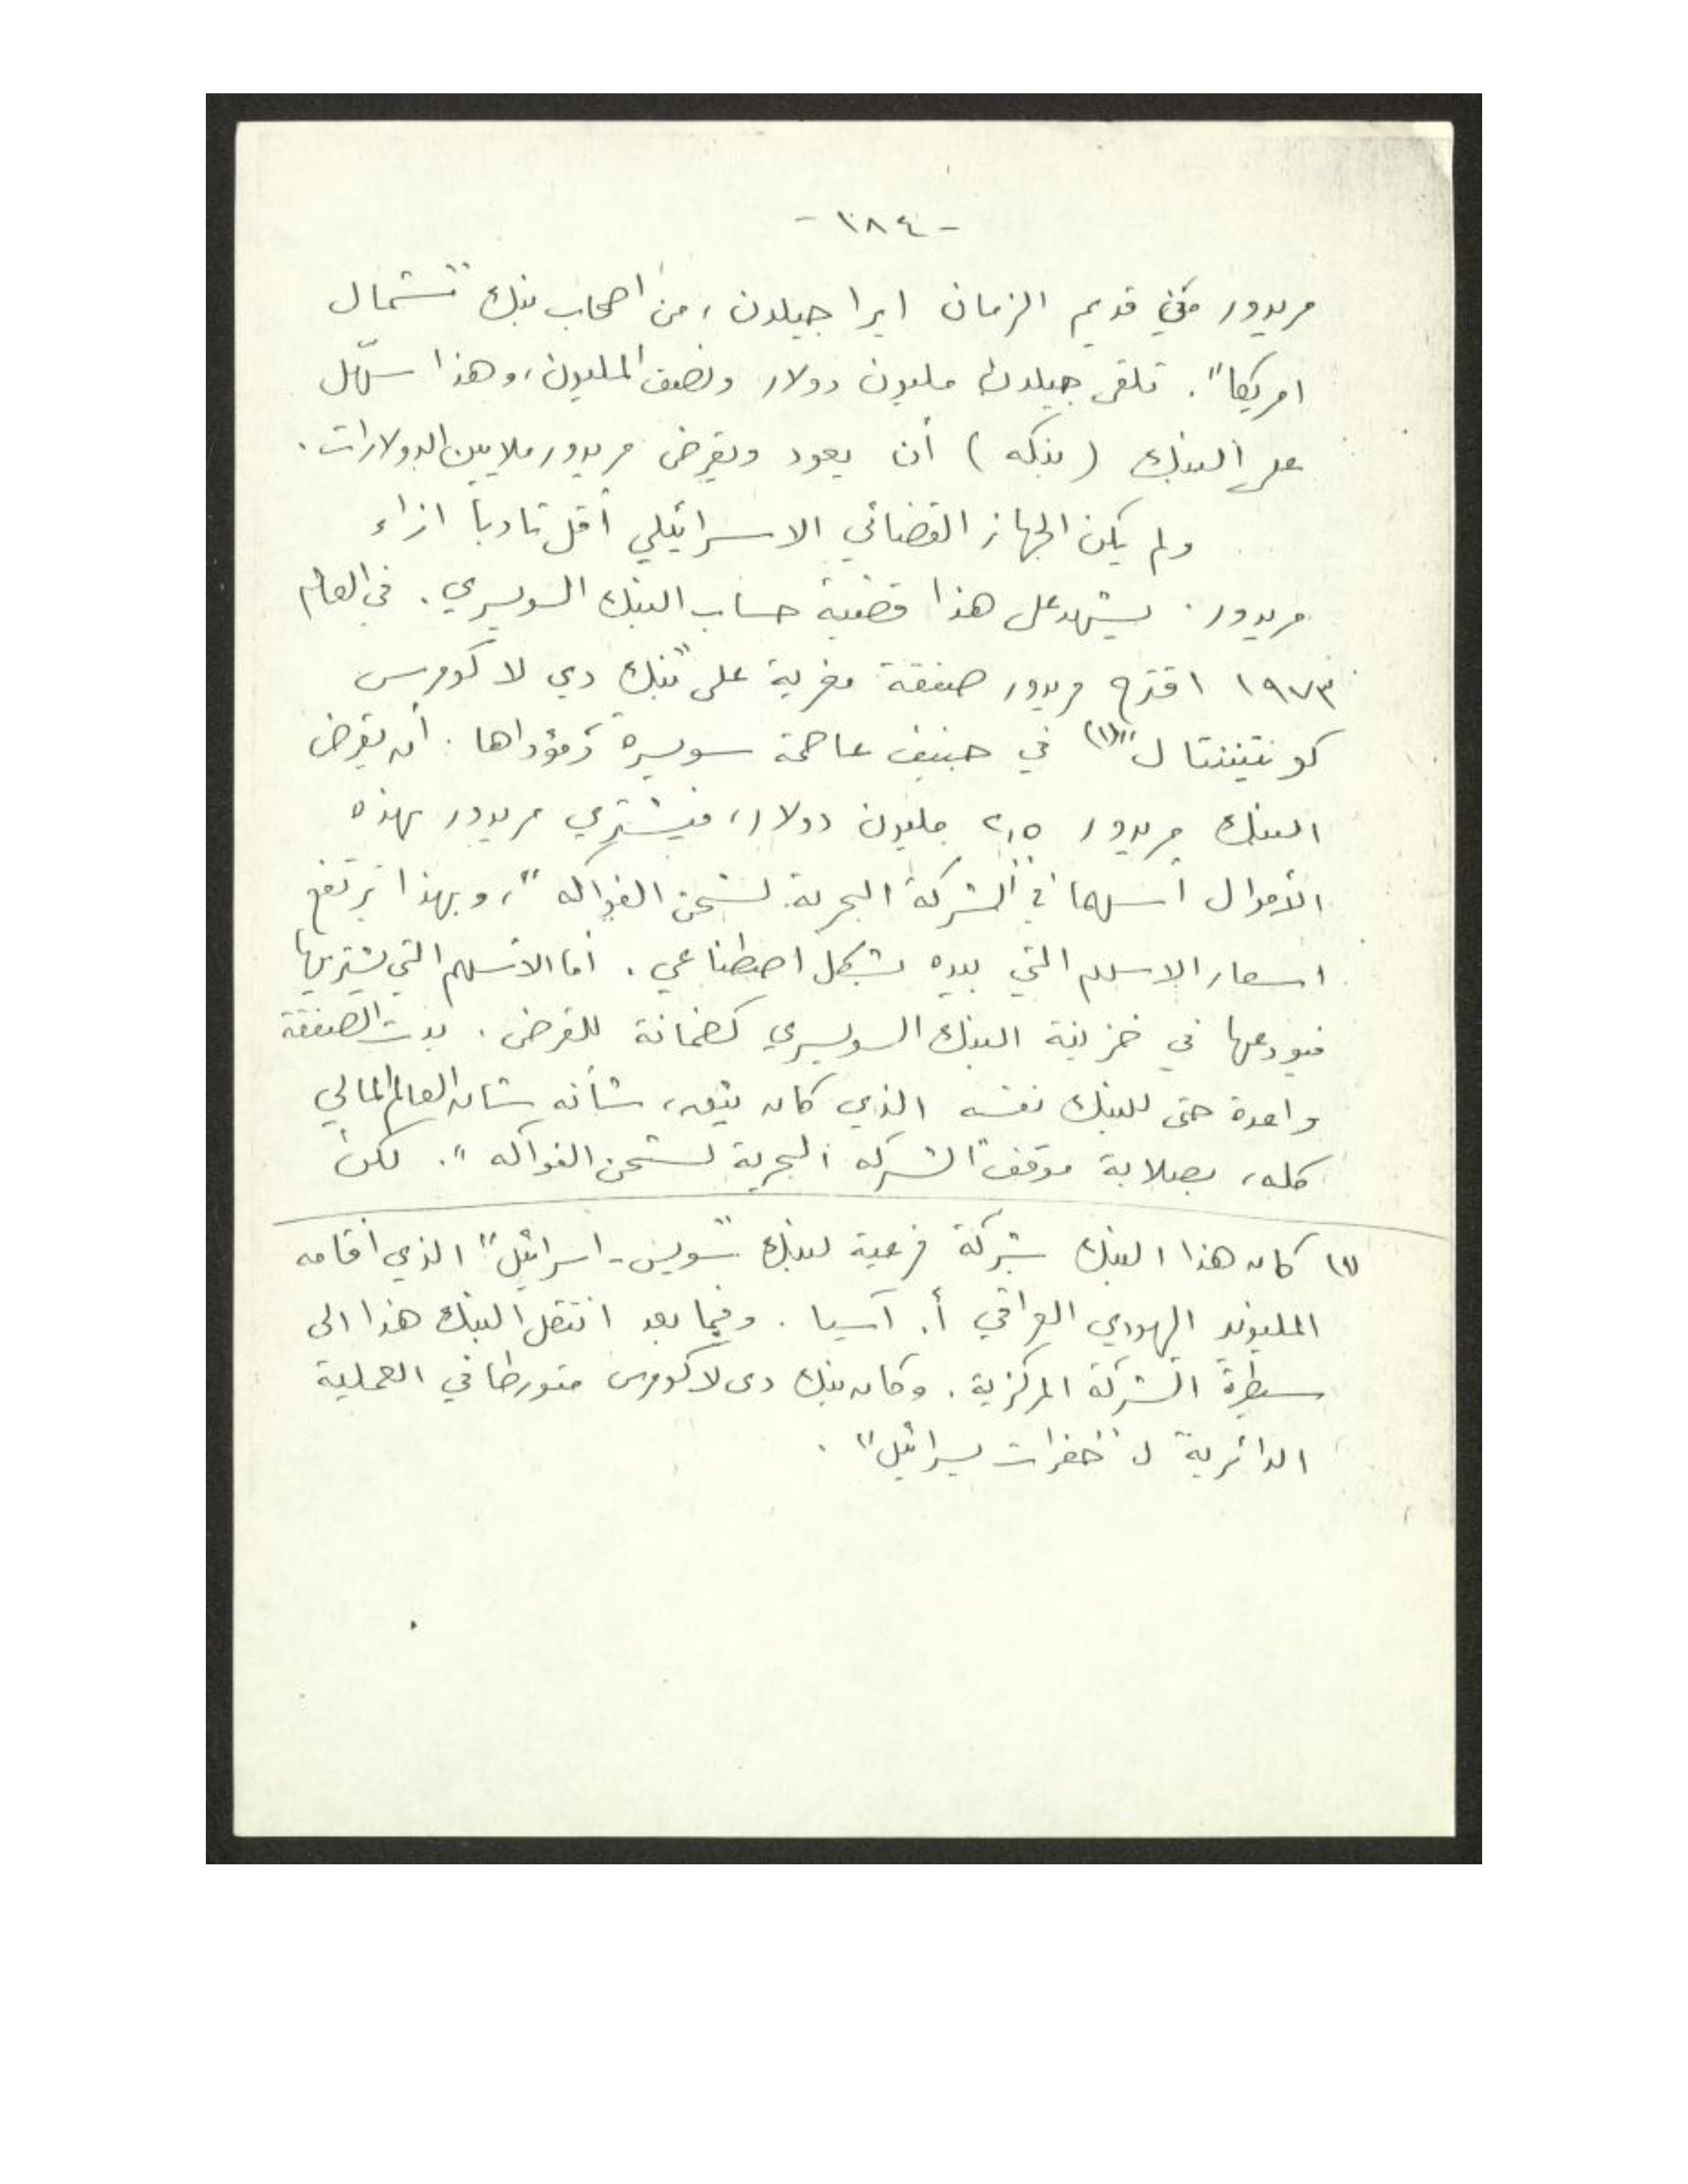 - ١٨٤ -
مريدور منذ قديم الزمان ايرا جيلدن، من اصحاب بنك "شمال
امريكا". تلقى جيلدن مليون دولار ونصف المليون، وهذا سهّل
على البنك (بنكه) أن يعود ويقرض مريدور ملايين الدولارات.
ولم يكن الجهاز القضائي الاسرائيلي أقل تأدباً ازاء
مريدور. يشهد على هذا قضية حساب البنك السويسري. في العام
١٩٧٣ اقترح مريدور صفقة مغرية على "بنك دي لا كومرس
كونتيننتال"(١) في جنيف عاصمة سويسرة مؤداها: أن يقرض
البنك مريدور ٢,٥ مليون دولار، فيشتري مريدور بهذه
الأموال أسهما في "الشركة البحرية لشحن الفواكه"، وبهذا ترتفع
اسعار الاسهم التي بيده بشكل اصطناعي. أما الأسهم التي يشتريها
فيودعها في خزينة البنك السويسري كضمانة للقرض. بدت الصفقة
واعدة حتى للبنك نفسه الذي كان يثق، شأنه شأن العالم المالي
كله، بصلابة موقف "الشركه البحرية لشحن الفواكه". لكن
(١) كان هذا البنك شركة فرعية لبنك "سويس - اسرائيل" الذي أقامه
المليونير اليهودي العراقي أ. آسيا. وفيما بعد انتقل البنك هذا الى
سيطرة الشركة المركزية. وكان بنك دى لا كومرس متورطا في العملية
الدائرية لـ "حفرات يسرائيل".